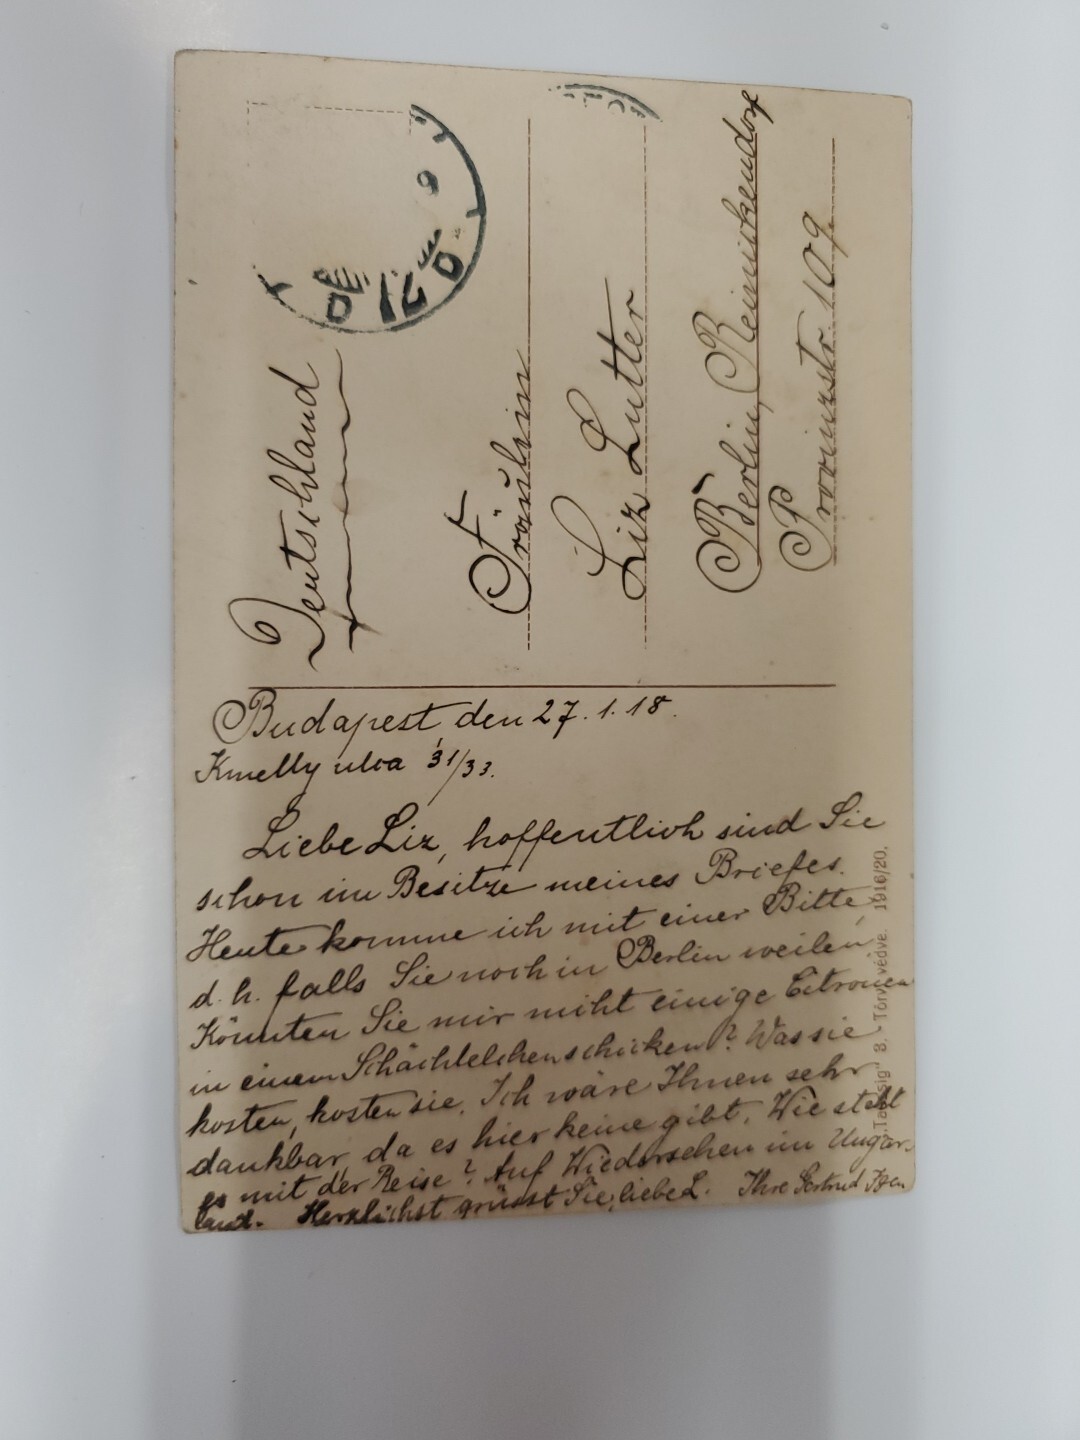 Deutschland
Fräulein
Liz Lutter
Berlin, Reinickendorf
Provinzstr. 109.
Budapest, den 27.1.18.
utca 31/33.
Liebe Liz, hoffentlich sind Sie
schon im Besitze meines Briefes.
Heute komme ich mit einer Bitte,
d. h. falls Sie noch in Berlin weilen,
Könnten Sie mir nicht einige Citronen
in einem Schächtelchen schicken? Was sie
kosten, kosten sie. Ich wäre Ihnen sehr
dankbar, da es hier keine gibt. Wie steht
es mit der Reise? Auf Wiedersehen im Ungar-
land. Herzlichst grüsst Sie, liebe L. Ihre Gertrud
"Taussig" 8. Törv. védve. 1916/20.